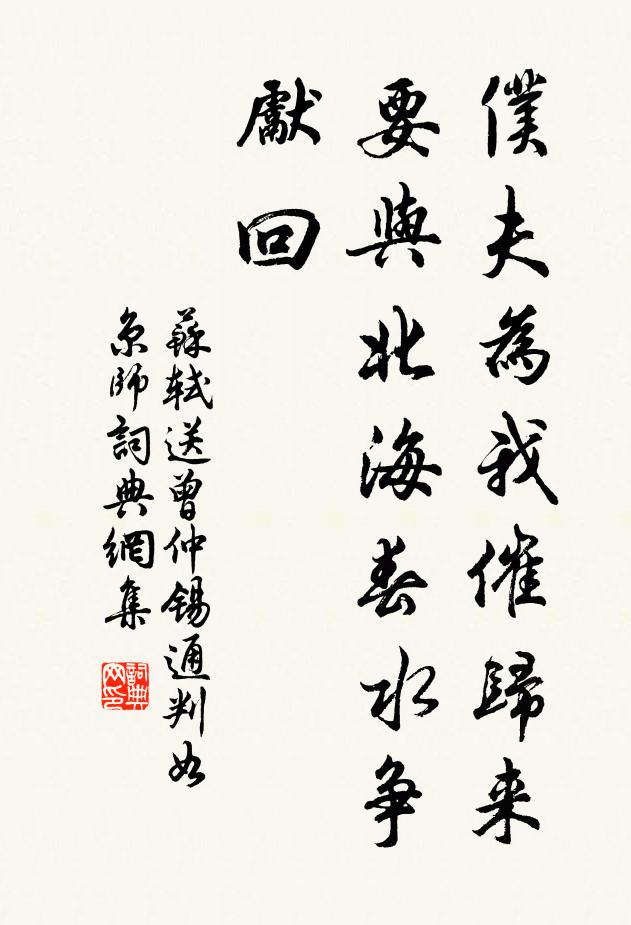 僕夫為我催歸来
要與北海春水争
獻回
蘇軾送曾仲錫通判如
京師詞典網集
詞典網印